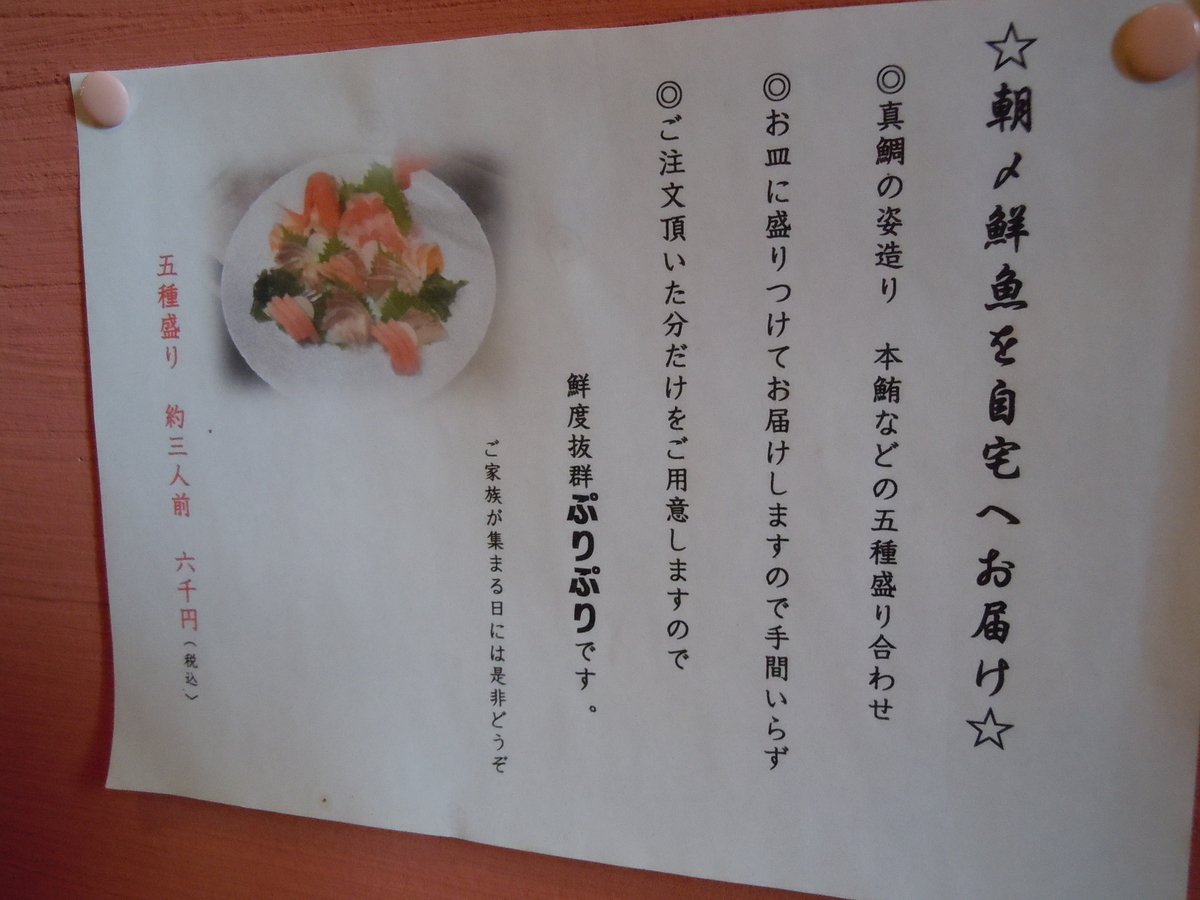 ☆朝〆鮮魚を自宅へお届け☆
◎真鯛の姿造り　本鮪などの五種盛り合わせ
◎お皿に盛りつけてお届けしますので手間いらず
◎ご注文頂いた分だけをご用意しますので
鮮度抜群ぷりぷりです。
ご家族が集まる日には是非どうぞ
五種盛り　約三人前　六千円（税込）